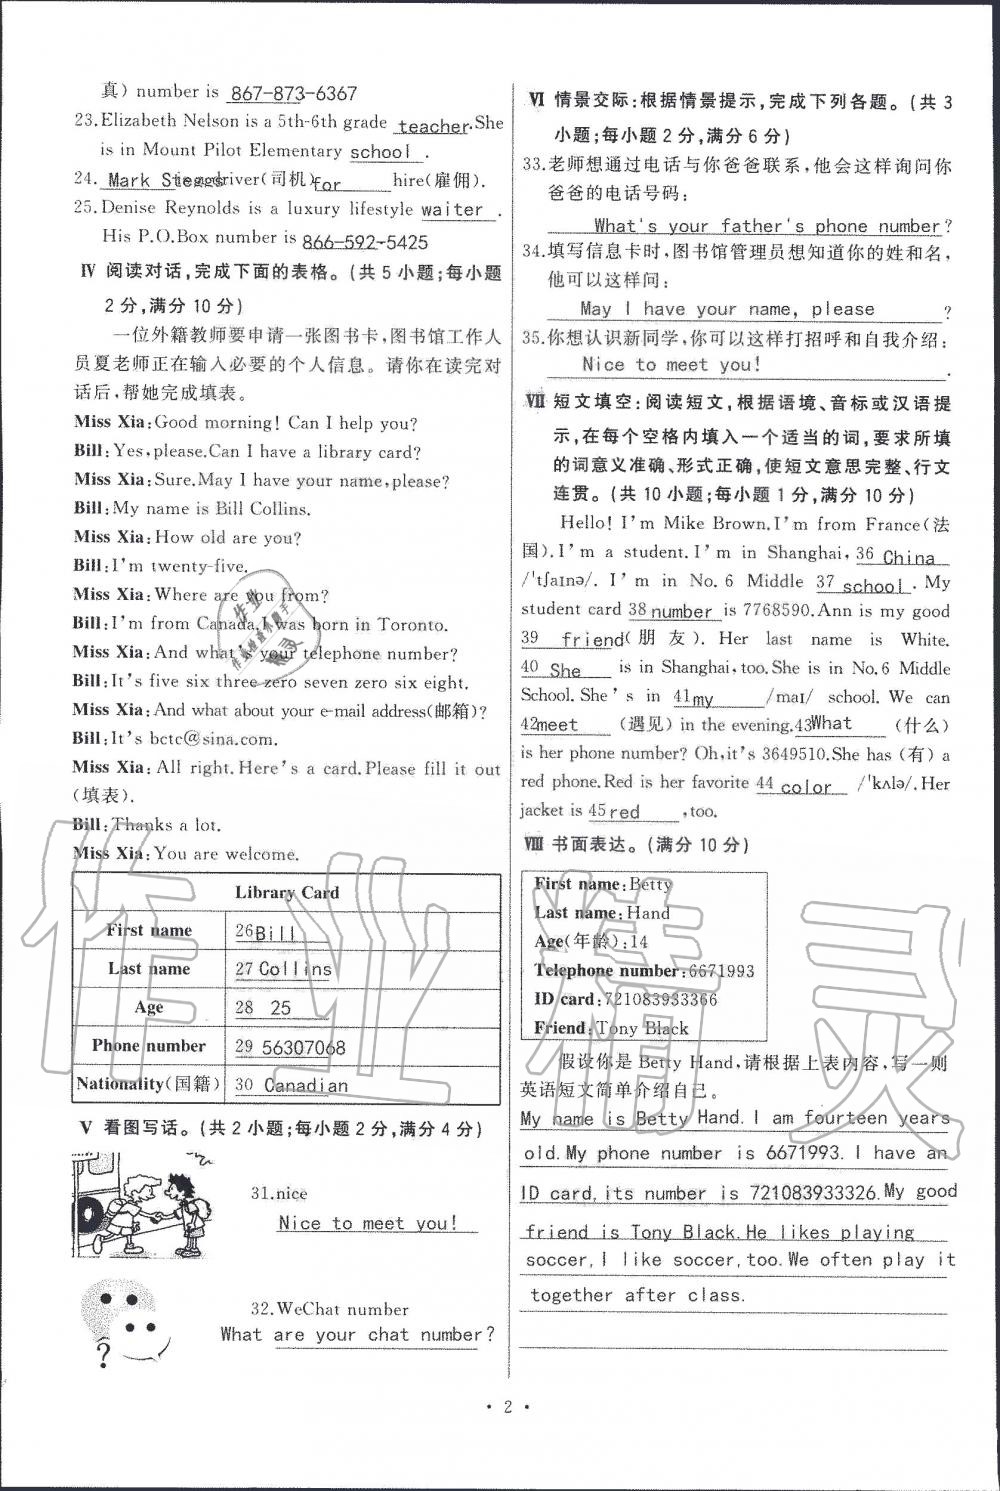 真) number is 867-873-6367
23.Elizabeth Nelson is a 5th-6th grade teacher.She
is in Mount Pilot Elementary school .
24. Mark Steggs driver(司机) for hire(雇佣).
25.Denise Reynolds is a luxury lifestyle waiter .
His P.O.Box number is 866-592-5425
Ⅳ 阅读对话,完成下面的表格。(共 5 小题;每小题
2 分,满分 10 分)
一位外籍教师要申请一张图书卡,图书馆工作人
员夏老师正在输入必要的个人信息。请你在读完对
话后,帮她完成填表。
Miss Xia:Good morning! Can I help you?
Bill:Yes,please.Can I have a library card?
Miss Xia:Sure.May I have your name,please?
Bill:My name is Bill Collins.
Miss Xia:How old are you?
Bill:I'm twenty-five.
Miss Xia:Where are you from?
Bill:I'm from Canada.I was born in Toronto.
Miss Xia:And what's your telephone number?
Bill:It's five six three zero seven zero six eight.
Miss Xia:And what about your e-mail address(邮箱)?
Bill:It's bctc@sina.com.
Miss Xia:All right.Here's a card.Please fill it out
(填表).
Bill:Thanks a lot.
Miss Xia:You are welcome.
Library Card
First name 26 Bill
Last name 27 Collins
Age 28 25
Phone number 29 56307068
Nationality(国籍) 30 Canadian
Ⅴ 看图写话。(共 2 小题;每小题 2 分,满分 4 分)
31.nice
Nice to meet you!
32.WeChat number
What are your chat number?
?
Ⅵ 情景交际:根据情景提示,完成下列各题。(共 3
小题;每小题 2 分,满分 6 分)
33.老师想通过电话与你爸爸联系,他会这样询问你
爸爸的电话号码:
What's your father's phone number?
34.填写信息卡时,图书馆管理员想知道你的姓和名,
他可以这样问:
May I have your name, please ?
35.你想认识新同学,你可以这样打招呼和自我介绍:
Nice to meet you! .
Ⅶ 短文填空:阅读短文,根据语境、音标或汉语提
示,在每个空格内填入一个适当的词,要求所填
的词意义准确、形式正确,使短文意思完整、行文
连贯。(共 10 小题;每小题 1 分,满分 10 分)
Hello! I'm Mike Brown.I'm from France(法
国).I'm a student.I'm in Shanghai, 36 China
/'tʃaɪnə/. I'm in No. 6 Middle 37 school. My
student card 38 number is 7768590.Ann is my good
39 friend(朋友). Her last name is White.
40 She is in Shanghai,too.She is in No.6 Middle
School. She's in 41 my /maɪ/ school. We can
42 meet (遇见) in the evening.43 What (什么)
is her phone number? Oh,it's 3649510.She has (有) a
red phone.Red is her favorite 44 color /'kʌlə/.Her
jacket is 45 red ,too.
Ⅷ 书面表达。(满分 10 分)
First name:Betty
Last name:Hand
Age(年龄):14
Telephone number:6671993
ID card:721083933366
Friend:Tony Black
假设你是 Betty Hand,请根据上表内容,写一则
英语短文简单介绍自己。
My name is Betty Hand. I am fourteen years
old. My phone number is 6671993. I have an
ID card, its number is 721083933326. My good
friend is Tony Black. He likes playing
soccer, I like soccer, too. We often play it
together after class.
· 2 ·
作业精灵